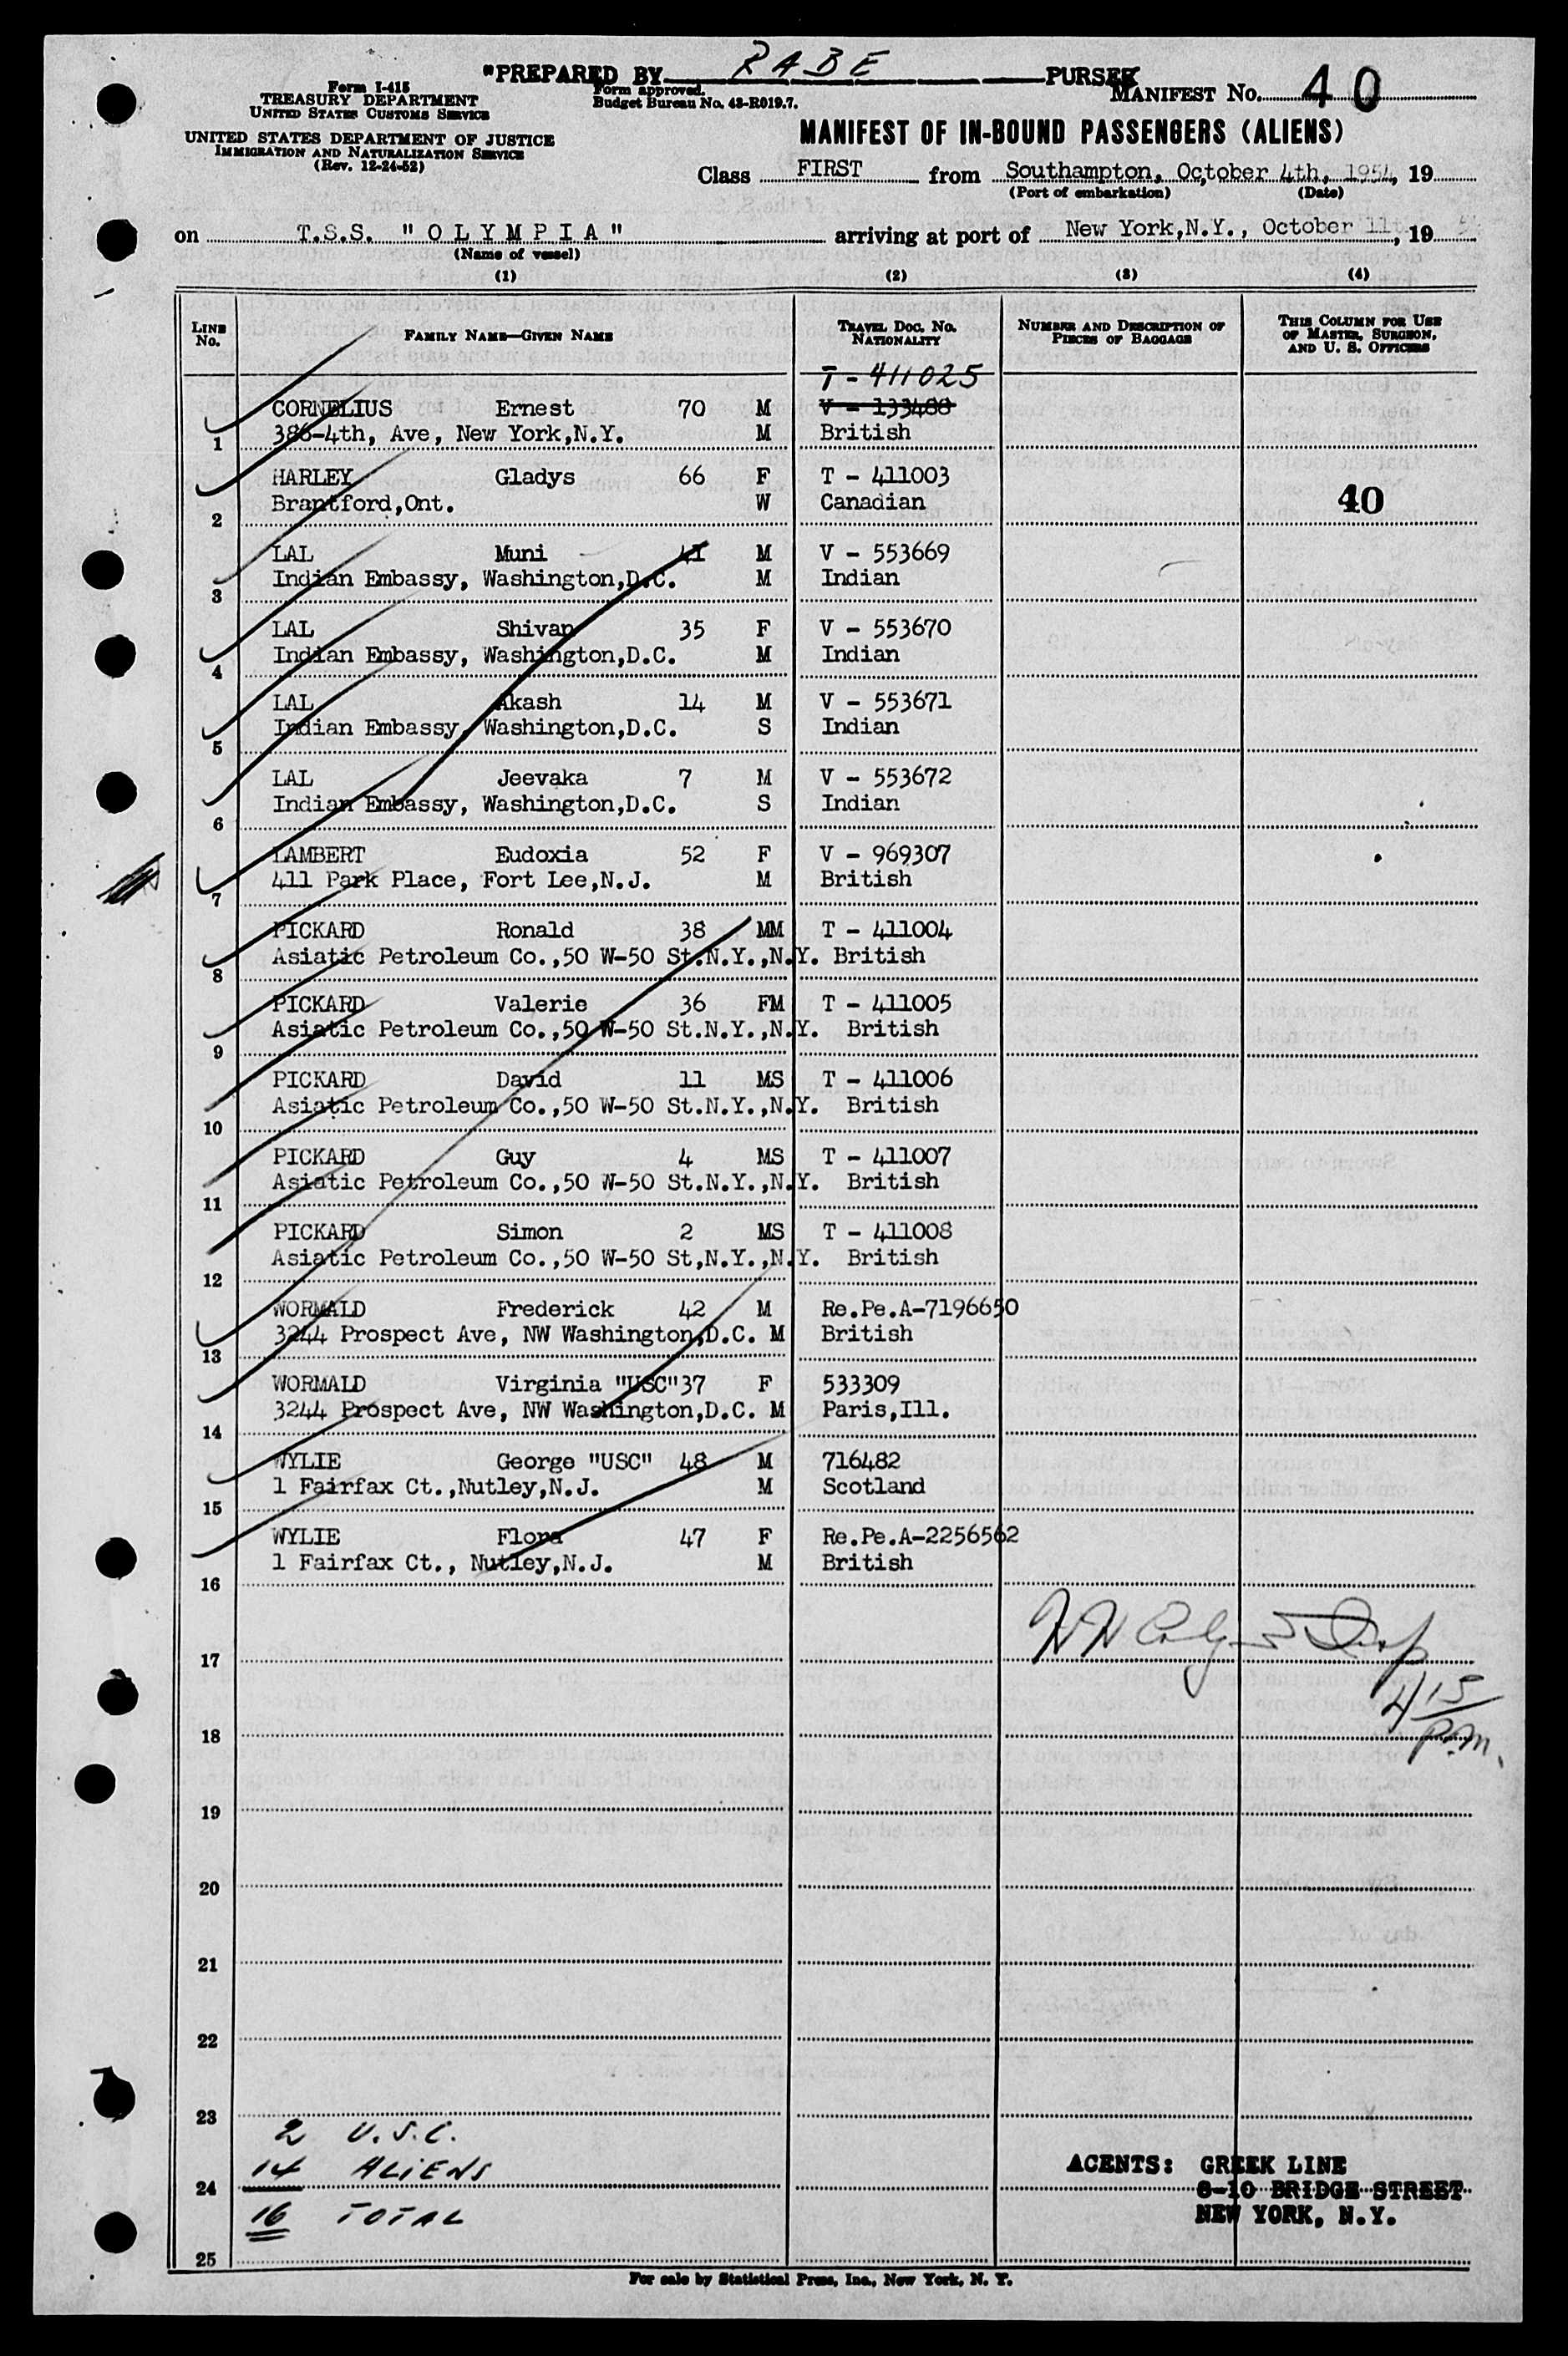 "PREPARED BY RABE PURSER
Form I-415
TREASURY DEPARTMENT
UNITED STATES CUSTOMS SERVICE
UNITED STATES DEPARTMENT OF JUSTICE
IMMIGRATION AND NATURALIZATION SERVICE
(Rev. 12-24-52)
Form approved.
Budget Bureau No. 43-R019.7.
MANIFEST No. 40
MANIFEST OF IN-BOUND PASSENGERS (ALIENS)
Class FIRST from Southampton, October 4th, 1954, 19
(Port of embarkation) (Date)
on T.S.S. "OLYMPIA" arriving at port of New York,N.Y., October 11t , 19
(Name of vessel)
(1) (2) (3) (4)
LINE No. FAMILY NAME—GIVEN NAME TRAVEL DOC. NO. NATIONALITY NUMBER AND DESCRIPTION OF PIECES OF BAGGAGE THIS COLUMN FOR USE OF MASTER, SURGEON, AND U. S. OFFICERS
T - 411025
CORNELIUS Ernest 70 M V - 133488
1 386-4th, Ave, New York,N.Y. M British
HARLEY Gladys 66 F T - 411003
2 Brantford,Ont. W Canadian 40
LAL Muni 41 M V - 553669
3 Indian Embassy, Washington,D.C. M Indian
LAL Shivan 35 F V - 553670
4 Indian Embassy, Washington,D.C. M Indian
LAL Akash 14 M V - 553671
5 Indian Embassy, Washington,D.C. S Indian
LAL Jeevaka 7 M V - 553672
6 Indian Embassy, Washington,D.C. S Indian
LAMBERT Eudoxia 52 F V - 969307
7 411 Park Place, Fort Lee,N.J. M British
PICKARD Ronald 38 MM T - 411004
8 Asiatic Petroleum Co.,50 W-50 St.N.Y.,N.Y. British
PICKARD Valerie 36 FM T - 411005
9 Asiatic Petroleum Co.,50 W-50 St.N.Y.,N.Y. British
PICKARD David 11 MS T - 411006
10 Asiatic Petroleum Co.,50 W-50 St.N.Y.,N.Y. British
PICKARD Guy 4 MS T - 411007
11 Asiatic Petroleum Co.,50 W-50 St.N.Y.,N.Y. British
PICKARD Simon 2 MS T - 411008
12 Asiatic Petroleum Co.,50 W-50 St,N.Y.,N.Y. British
WORMALD Frederick 42 M Re.Pe.A-7196650
13 3244 Prospect Ave, NW Washington,D.C. M British
WORMALD Virginia "USC" 37 F 533309
14 3244 Prospect Ave, NW Washington,D.C. M Paris,Ill.
WYLIE George "USC" 48 M 716482
15 1 Fairfax Ct.,Nutley,N.J. M Scotland
WYLIE Flora 47 F Re.Pe.A-2256562
16 1 Fairfax Ct., Nutley,N.J. M British
17
4 15
18 P.M.
19
20
21
22
23
2 U.S.C.
14 ALIENS AGENTS: GREEK LINE
24 8-10 BRIDGE STREET
16 TOTAL NEW YORK, N.Y.
25
For sale by Statistical Press, Inc., New York, N. Y.